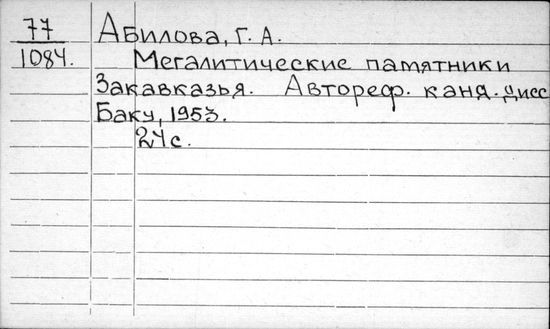 77
1084.
Абилова, Г. А.
Мегалитические памятники
Закавказья. Автореф. канд. дисс
Баку, 1953.
24 с.